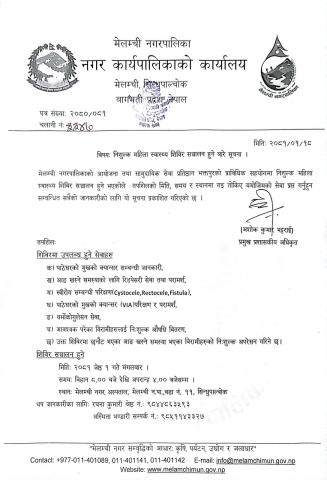 मेलम्ची नगरपालिका
नगर कार्यपालिकाको कार्यालय
मेलम्ची, सिन्धुपाल्चोक
बागमती प्रदेश, नेपाल
पत्र संख्या: २०८०/०८१
चलानी नं.
मिति: २०८१/०१/१८
विषय: निशुल्क महिला स्वास्थ्य शिविर सञ्चालन हुने बारे सूचना ।
मेलम्ची नगरपालिकाको आयोजना तथा सामुदायिक सेवा प्रतिष्ठान भक्तपुरको प्राविधिक सहयोगमा निशुल्क महिला
स्वास्थ्य शिविर सञ्चालन हुने भएकोले तपशिलको मिति, समय र स्थानमा गई तोकिए बमोजिमको सेवा प्राप्त गर्नुहुन
सम्बन्धित सबैको जानकारीको लागि यो सूचना प्रकाशित गरिएको छ ।
(अशोक कुमार भट्टराई)
प्रमुख प्रशासकीय अधिकृत
तपसिल:
शिविरमा उपलब्ध हुने सेवाहरु
क) पाठेघरको मुखको क्यान्सर सम्बन्धी जानकारी,
ख) आङ खस्ने समस्याको लागि रिङपेसरी सेवा तथा परामर्श,
ग) स्त्रीरोग सम्बन्धी परिक्षण(Cystocele,Rectocele,Fistula),
घ) पाठेघरको मुखको क्यान्सर (VIA)परिक्षण र परामर्श,
ङ) थर्मोकोगुलेसन सेवा,
च) आवश्यक परेका विरामीहरुलाई निःशुल्क औषधि वितरण,
छ) उक्त शिविरमा छनौट भएका आङ खस्ने समस्या भएका विरामीहरुको निःशुल्क अपरेसन गरिने छ।
शिविर सञ्चालन हुने
मिति: २०८१ जेष्ठ १ गते मंगलवार ।
समय: बिहान ८.०० बजे देखि अपरान्ह ४.०० बजेसम्म ।
स्थान: मेलम्ची नगर अस्पताल, मेलम्ची न.पा.,वडा नं. ११, सिन्धुपाल्चोक
थप जानकारीका लागि: रचना कुमारी श्रेष्ठ नं.: ९८४४८६३५१३
अस्मिता भण्डारी सम्पर्क नं.: ९८४११४३३२७
"मेलम्ची नगर सम्वृद्धिको आधार: कृषि, पर्यटन, उद्योग र जलाधार"
Contact: +977-011-401089, 011-401141, 011-401142 E-mail: info@melamchimun.gov.np
Website: www.melamchimun.gov.np